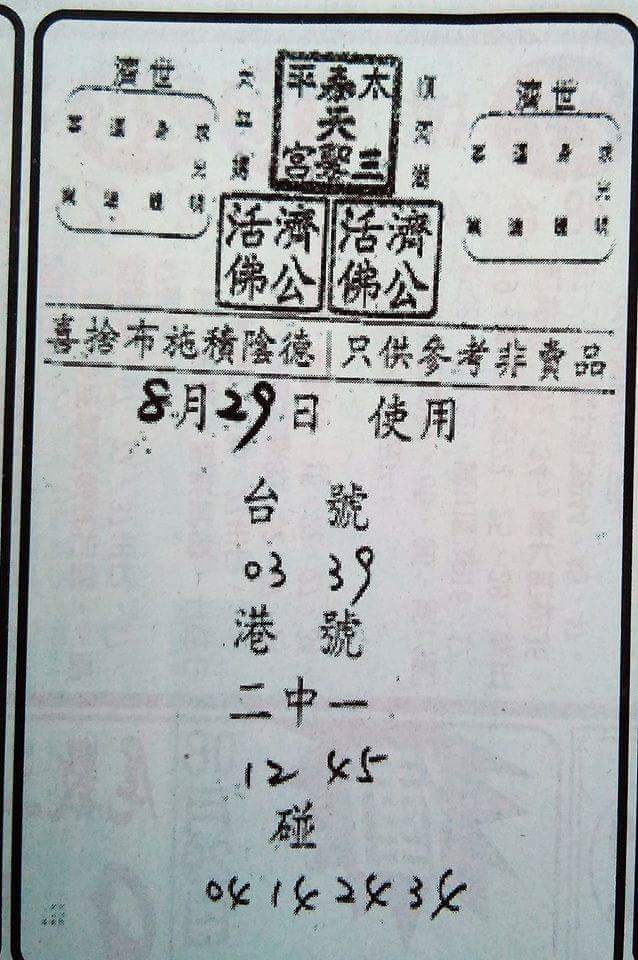 濟世
太平
天
三聖宮
濟世
濟公活佛
濟公活佛
喜捨布施積陰德 只供參考非賣品
8月29日 使用
台號
03 39
港號
二中一
12 45
碰
04 14 24 34